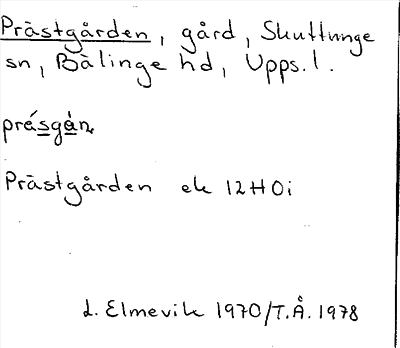 Prästgården, gård, Skuttunge
sn, Bälinge hd, Upps. l.
présgån
Prästgården ek 12H0i
L. Elmevik 1970/T.Å. 1978